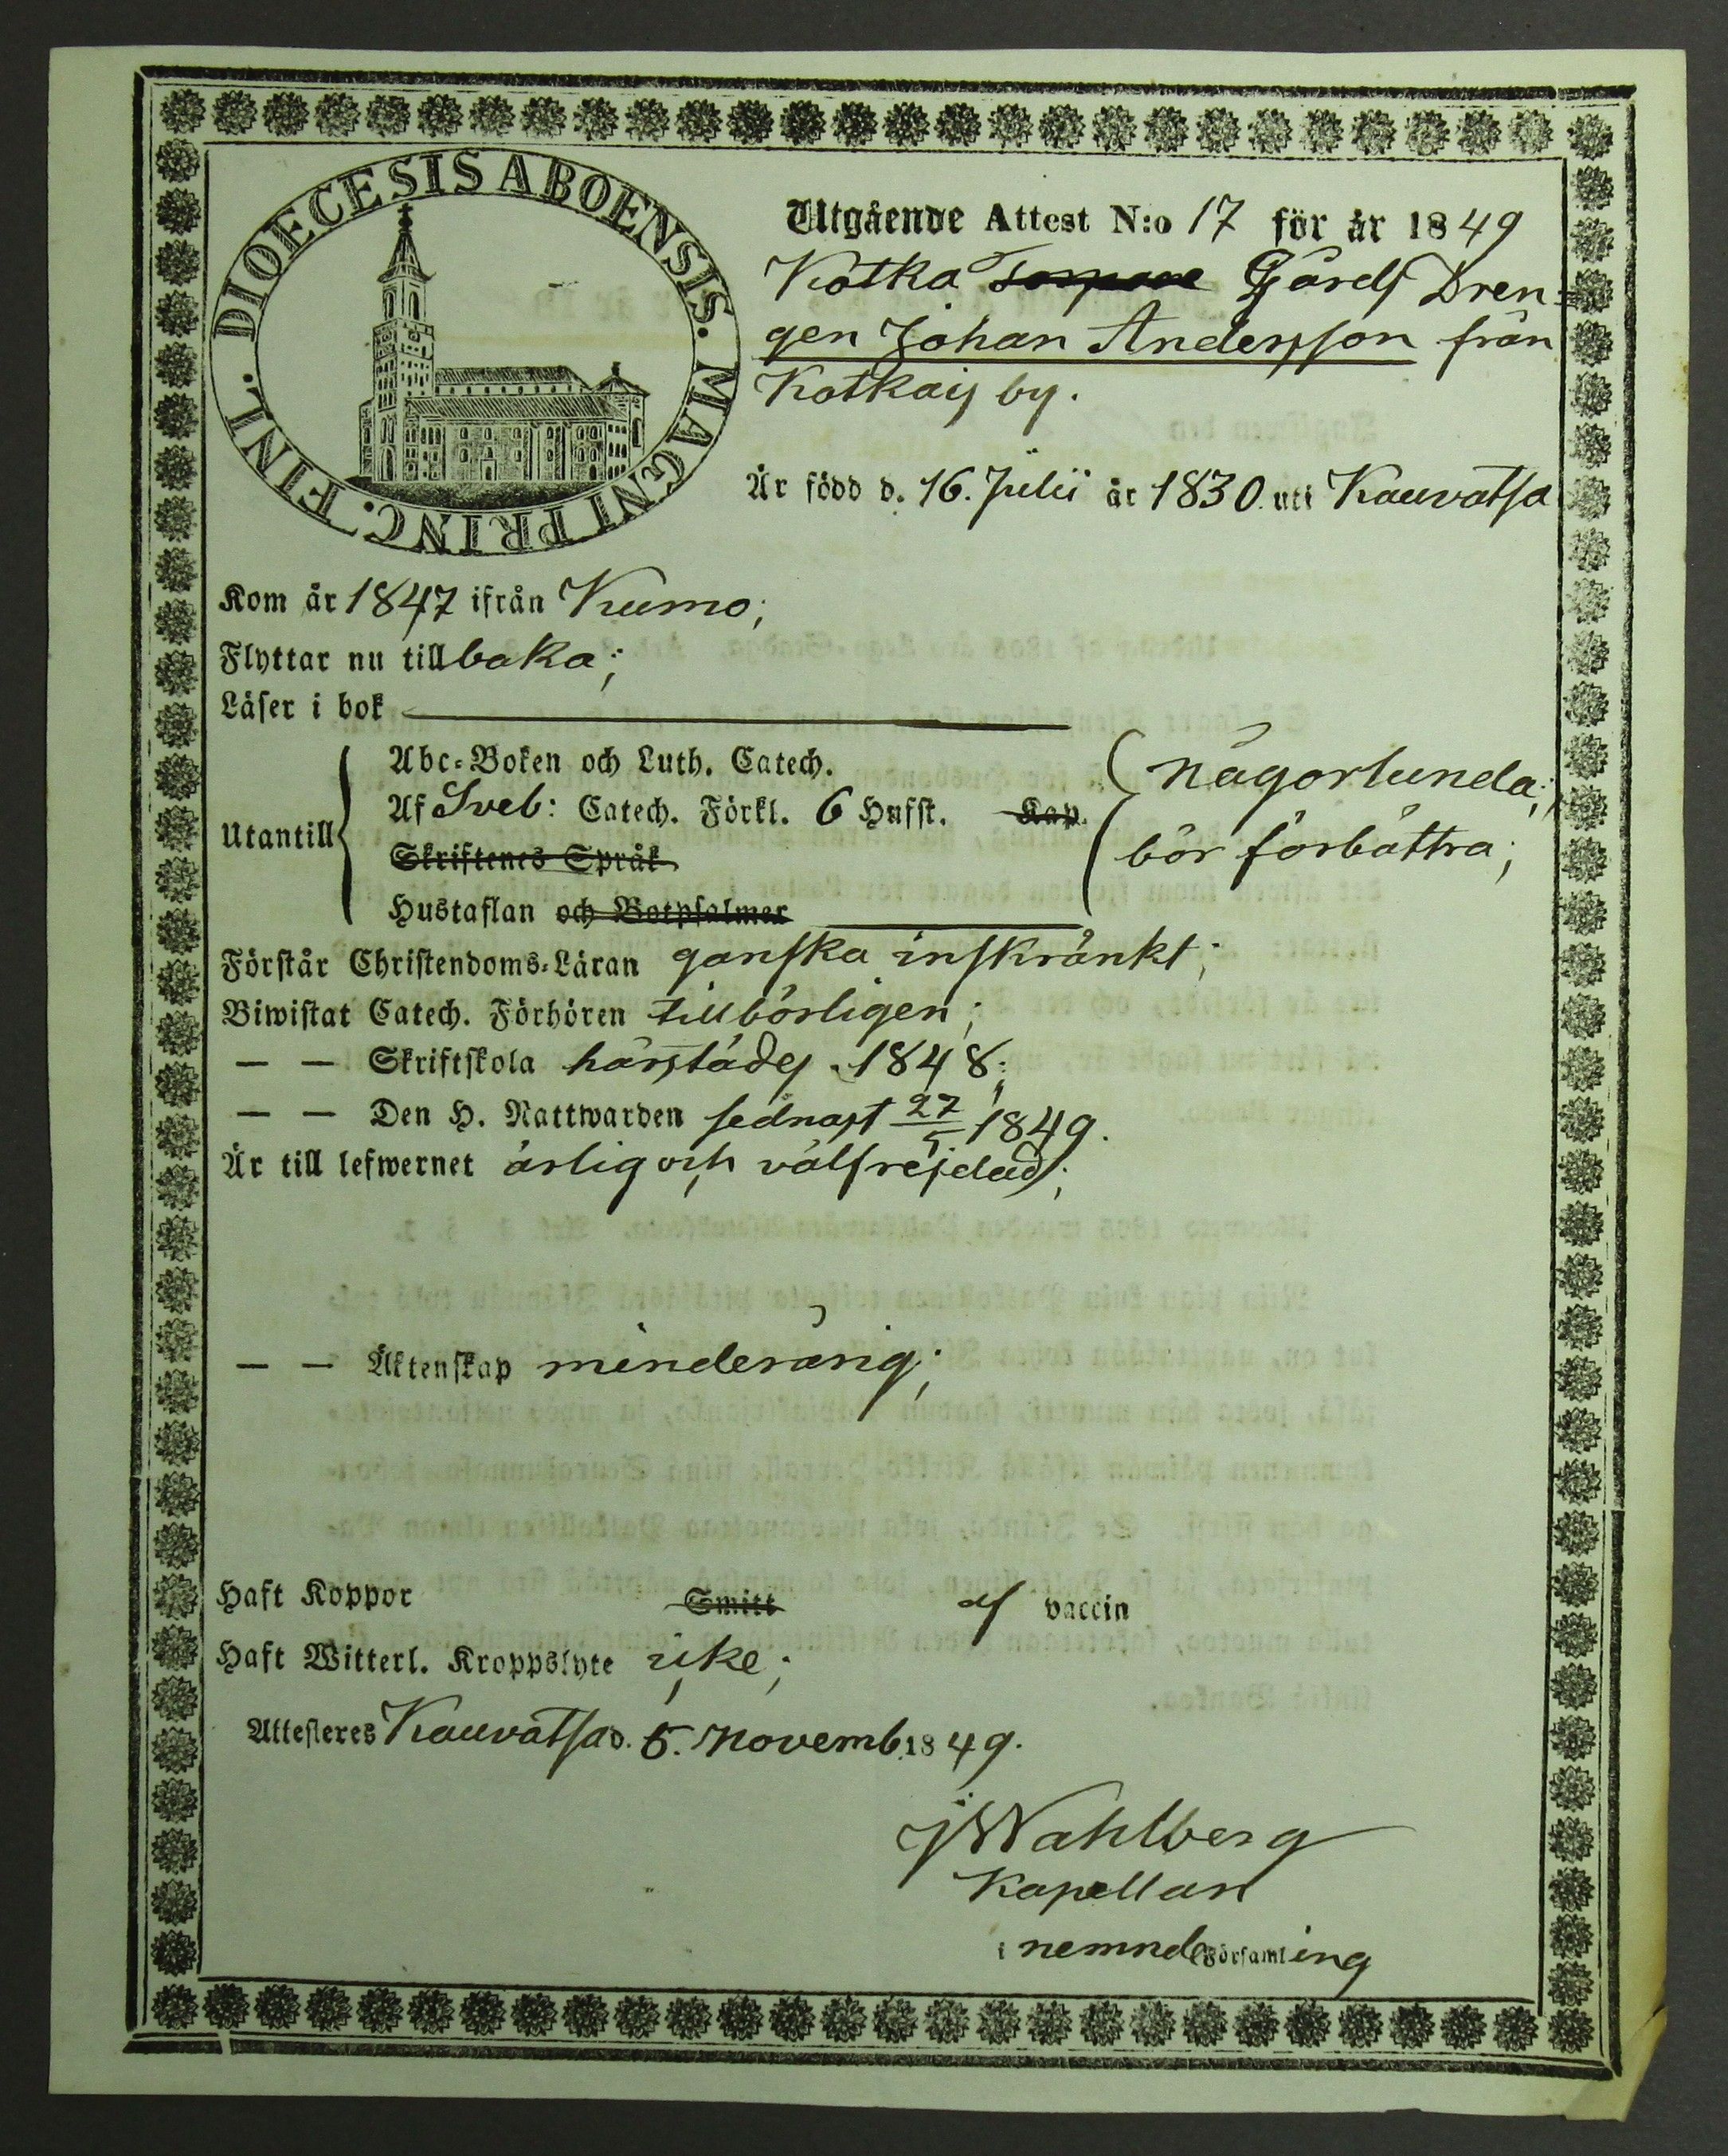 DIOECESIS ABOENSIS. MAGNI PRINC. FINL.
Utgående Attest N:o 17 för år 1849
Kotka Gårds Dren-
gen Johan Andersson från
Kotkais by.
Är född d. 16. Julii år 1830. uti Kauvatsa
Kom år 1847 ifrån Kumo;
Flyttar nu tillbaka;
Läser i bok
Utantill
Abc-Boken och Luth. Catech.
Af Sveb: Catech. Förkl. 6 Hufst. Kap.
Skriftenes Språk
Hustaflan och Botpsalmer
någorlunda;
bör förbättra;
Förstår Christendoms-Läran ganska inskränkt;
Biwistat Catech. Förhören tillbörligen;
— — Skriftskola härstädes 1848;
— — Den H. Nattwarden sednast 27/5 1849.
Är till lefwernet ärlig och välfrejdad;
— — Äktenskap minderårig;
Haft Koppor Smitt af vaccin
Haft Witterl. Kroppslyte icke;
Attesteres Kauvatsa d. 5. Novemb. 1849.
J Wahlberg
Kapellan
i nemnde Församling